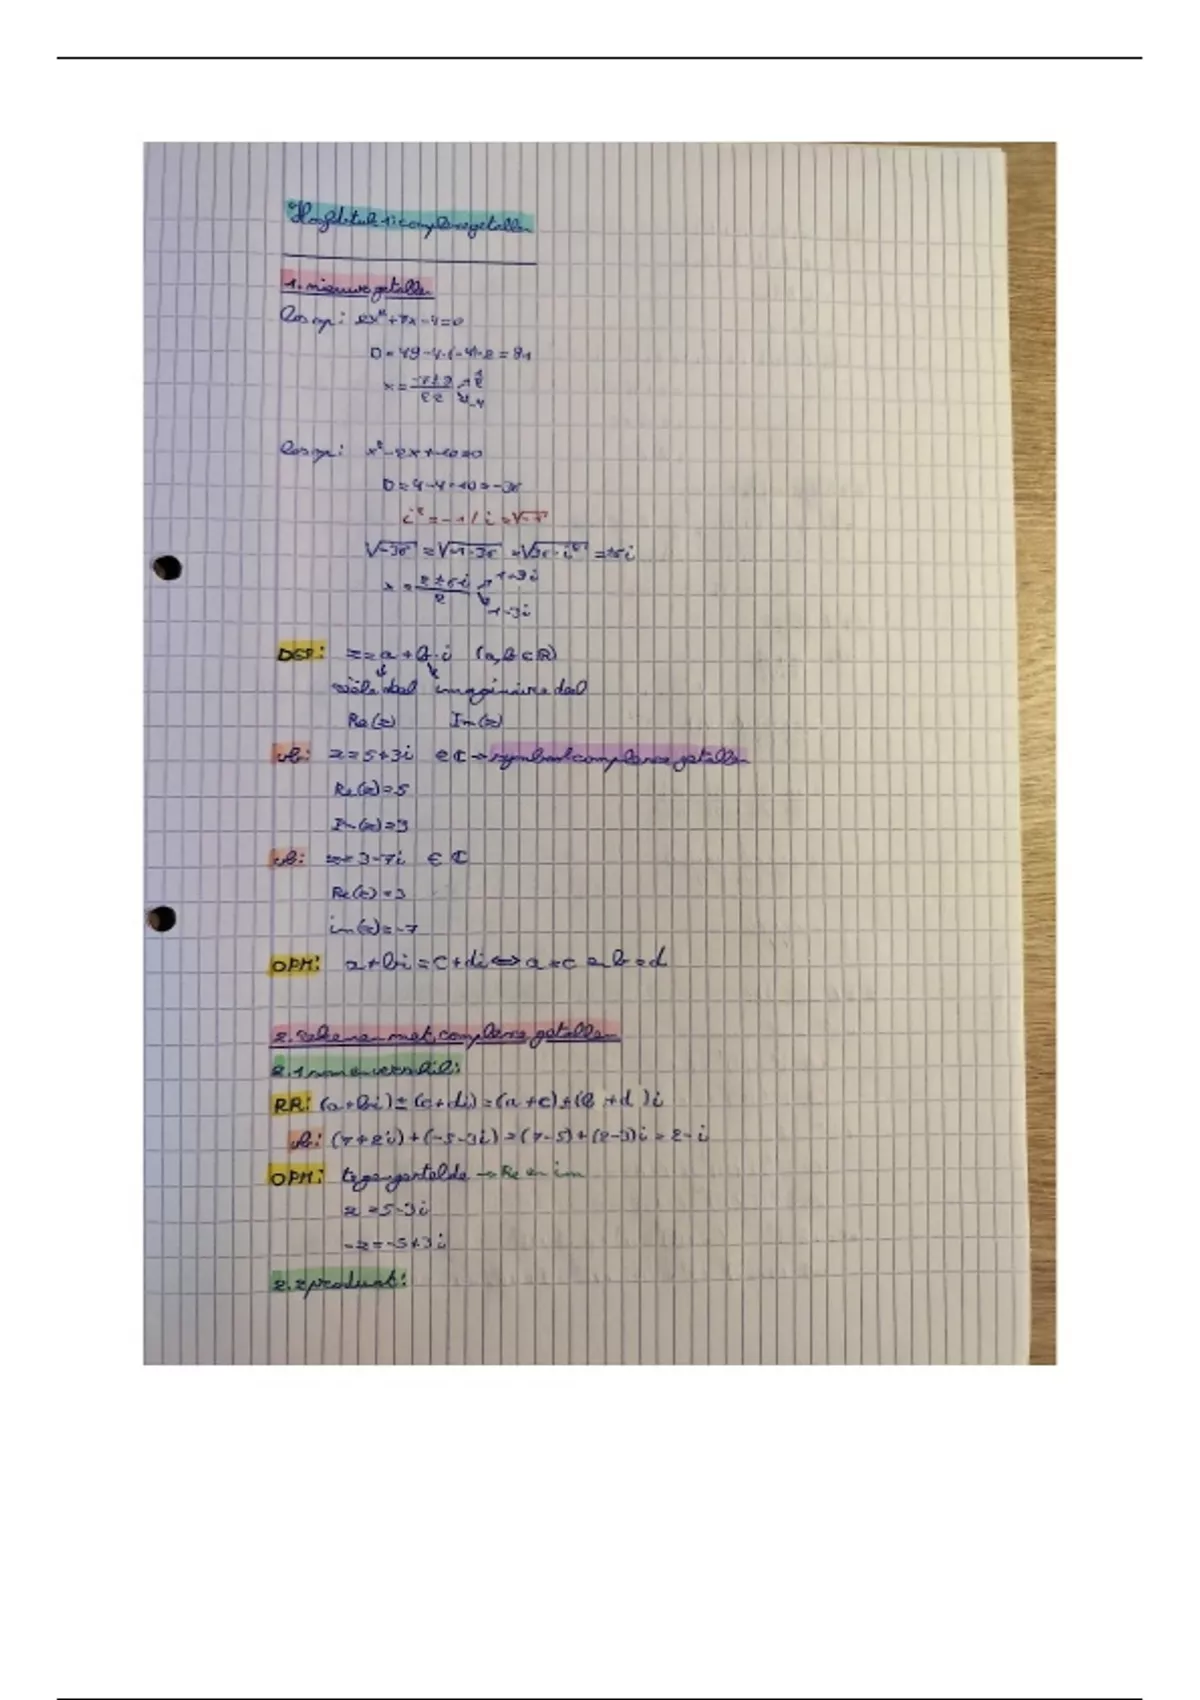 Hoofdstuk 1: complexe getallen
1. nieuwe getallen
Los op: 2x² + 7x - 4 = 0
D = 49 - 4·(-4)·2 = 81
x = 
Los op: x² - 2x + 10 = 0
D = 4 - 4·10 = -36
i² = -1 / i = √-1
√-36 = √-1·36 = √36·i² = ±6i
x = (2 ± 6i)/2 ↗ 1+3i
↘ 1-3i
DEF: z = a + b·i (a, b ∈ ℝ)
reële deel imaginaire deel
Re(z) Im(z)
vb: z = 5 + 3i ∈ ℂ → symbool complexe getallen
Re(z) = 5
Im(z) = 3
vb: z = 3 - 7i ∈ ℂ
Re(z) = 3
im(z) = -7
OPM: a + bi = c + di ⇔ a = c b = d
2. rekenen met complexe getallen
2.1 som en verschil:
RR: (a + bi) ± (c + di) = (a + c) ± (b + d) i
vb: (7 + 2i) + (-5 - 3i) = (7 - 5) + (2 - 3)i = 2 - i
OPM: tegengestelde → Re en im
z = 5 - 3i
-z = -5 + 3i
2.2 product: